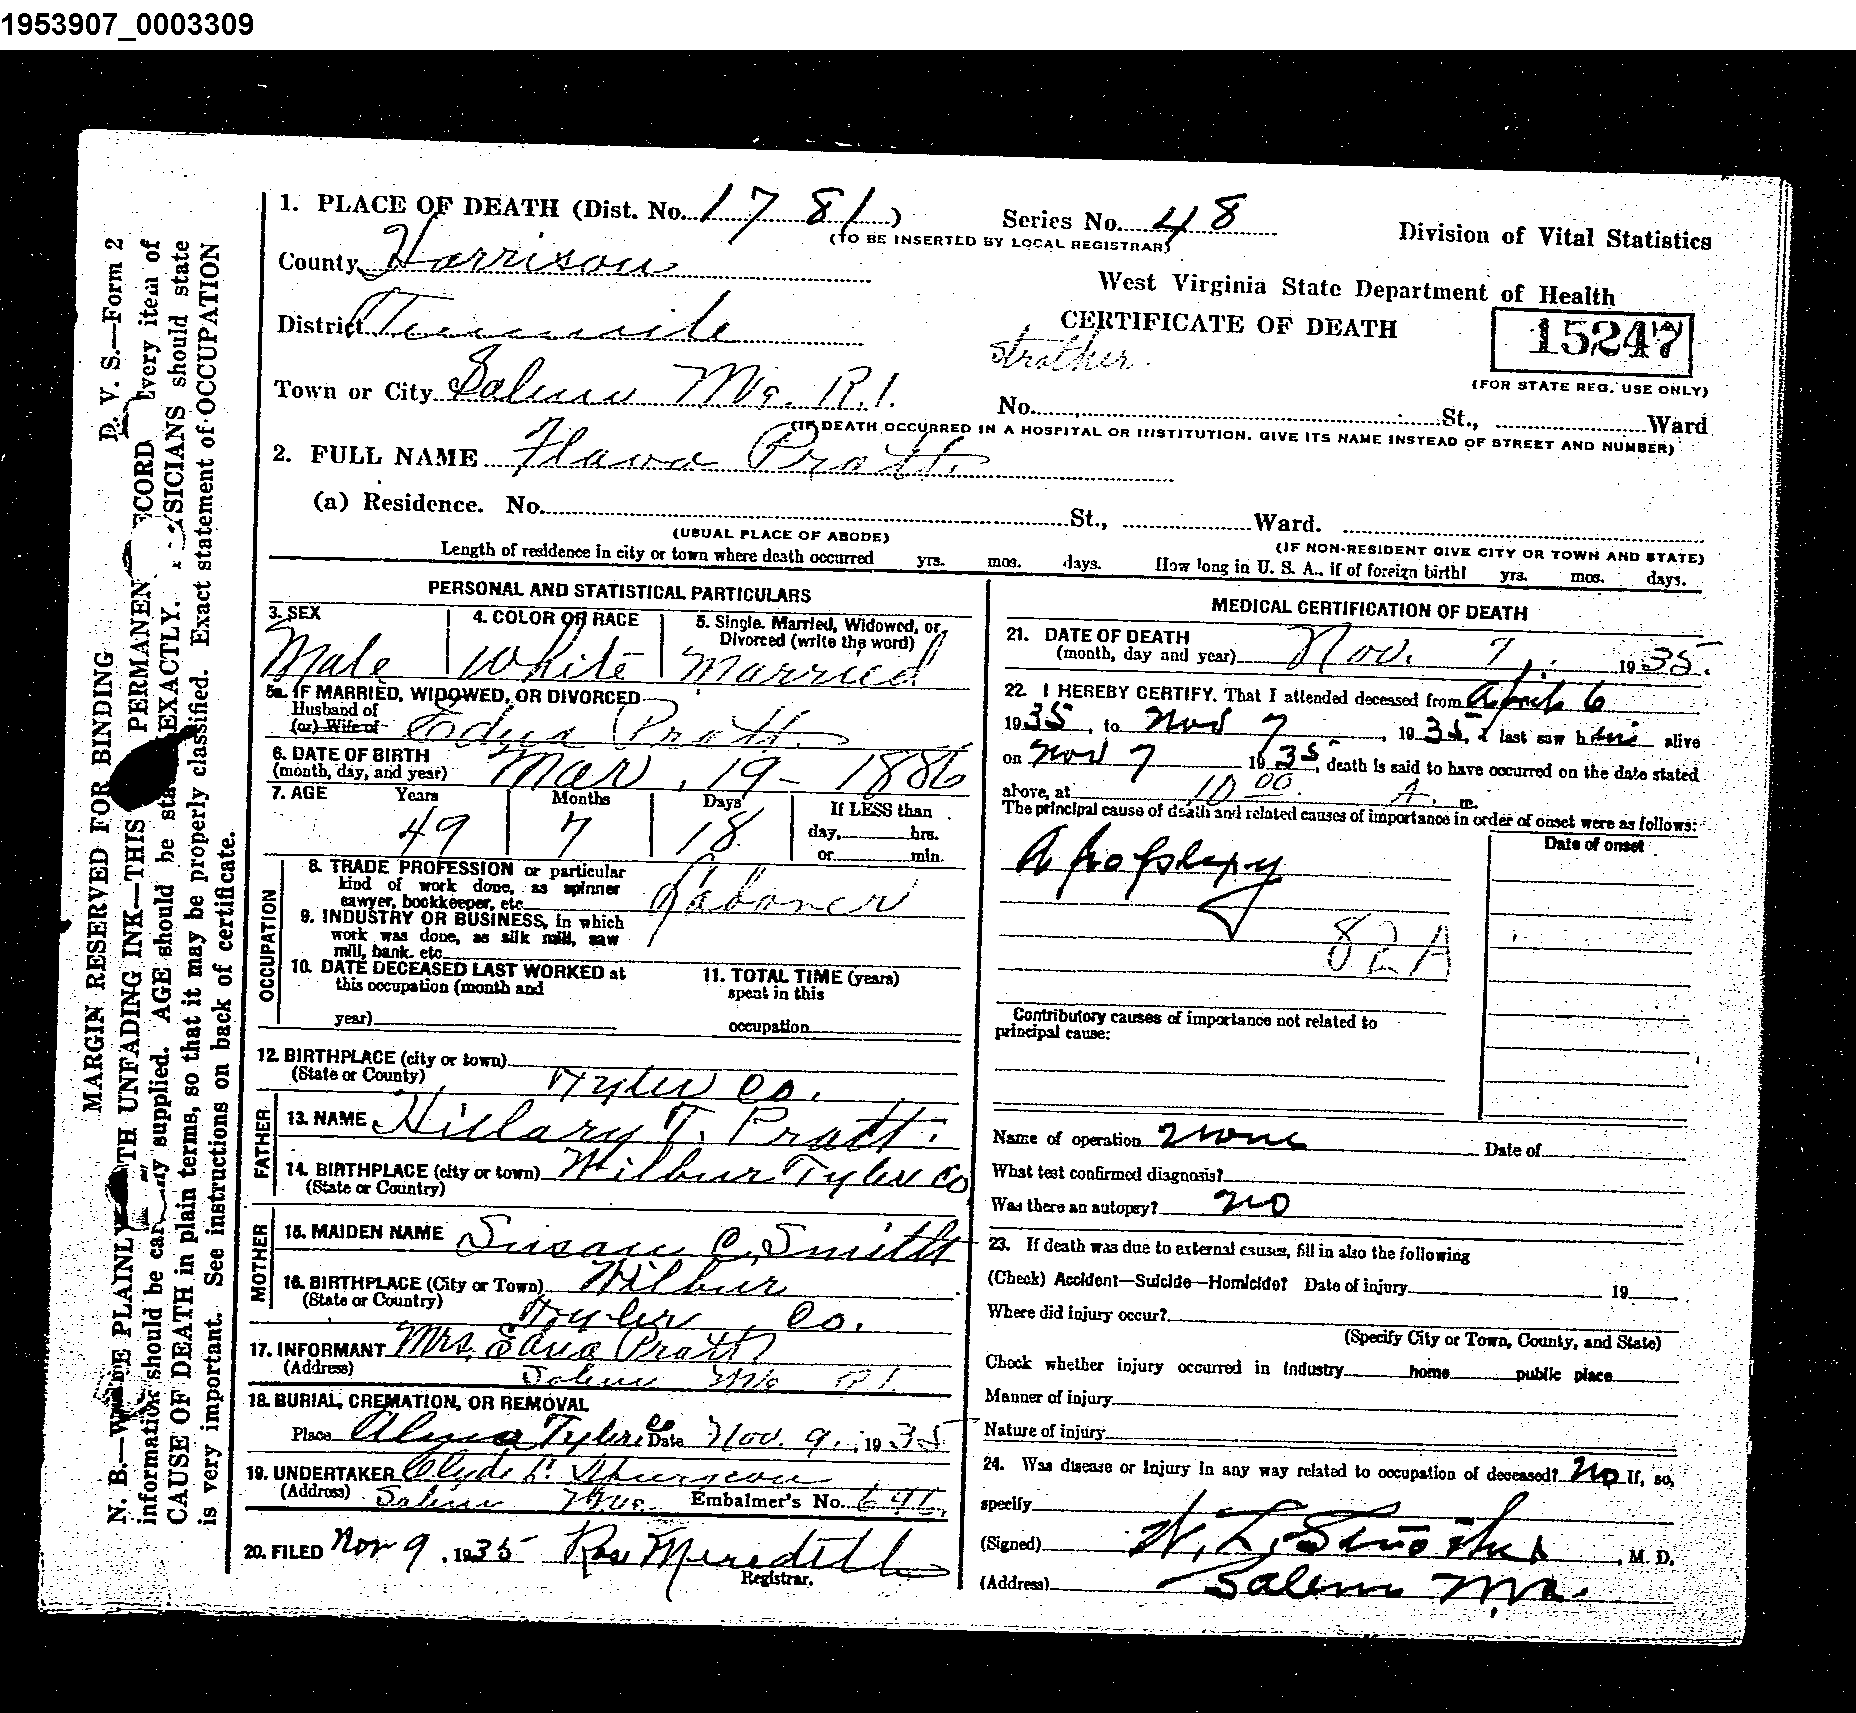 1953907_0003309
D. V. S.—Form 2
MARGIN RESERVED FOR BINDING
N. B.—WRITE PLAINLY WITH UNFADING INK—THIS PERMANEN RECORD Every item of
information should be carefully supplied. AGE should be stated EXACTLY. PHYSICIANS should state
CAUSE OF DEATH in plain terms, so that it may be properly classified. Exact statement of OCCUPATION
is very important. See instructions on back of certificate.
1. PLACE OF DEATH (Dist. No. 1781) Series No. 48
(TO BE INSERTED BY LOCAL REGISTRAR)
Division of Vital Statistics
County Harrison
West Virginia State Department of Health
District Tenmile
CERTIFICATE OF DEATH
15247
Strother
(FOR STATE REG. USE ONLY)
Town or City Salem W.Va. R.1. No. St., Ward
(IF DEATH OCCURRED IN A HOSPITAL OR INSTITUTION, GIVE ITS NAME INSTEAD OF STREET AND NUMBER)
2. FULL NAME Flava Pratt
(a) Residence. No. St., Ward.
(USUAL PLACE OF ABODE) (IF NON-RESIDENT GIVE CITY OR TOWN AND STATE)
Length of residence in city or town where death occurred yrs. mos. days. How long in U. S. A., if of foreign birth? yrs. mos. days.
PERSONAL AND STATISTICAL PARTICULARS
3. SEX 4. COLOR OR RACE 5. Single, Married, Widowed, or
Divorced (write the word)
Male White Married
5a. IF MARRIED, WIDOWED, OR DIVORCED
Husband of
(or) Wife of Edna Pratt
6. DATE OF BIRTH
(month, day, and year) Mar. 19 - 1886
7. AGE Years Months Days If LESS than
49 7 18 day, hrs.
or min.
OCCUPATION
8. TRADE PROFESSION or particular
kind of work done, as spinner
sawyer, bookkeeper, etc. Laborer
9. INDUSTRY OR BUSINESS, in which
work was done, as silk mill, saw
mill, bank, etc.
10. DATE DECEASED LAST WORKED at
this occupation (month and
year)
11. TOTAL TIME (years)
spent in this
occupation
12. BIRTHPLACE (city or town)
(State or County) Tyler Co.
FATHER
13. NAME Hillary T. Pratt.
14. BIRTHPLACE (city or town) Wilbur Tyler Co
(State or Country)
MOTHER
15. MAIDEN NAME Susan C. Smith
16. BIRTHPLACE (City or Town) Wilbur
(State or Country) Tyler Co.
17. INFORMANT Mrs. Edna Pratt
(Address) Salem W.Va R.1.
18. BURIAL, CREMATION, OR REMOVAL
Place Alma Tyler Co Date Nov. 9. 1935
19. UNDERTAKER Clyde L.
(Address) Salem W.Va. Embalmer's No.
20. FILED Nov 9, 1935 Meredith
Registrar.
MEDICAL CERTIFICATION OF DEATH
21. DATE OF DEATH
(month, day and year) Nov. 7, 1935.
22. I HEREBY CERTIFY, That I attended deceased from April 6
1935, to Nov 7, 1935, I last saw him alive
on Nov 7 1935, death is said to have occurred on the date stated
above, at 10 00 A. m.
The principal cause of death and related causes of importance in order of onset were as follows:
Date of onset
Apoplexy
82A
Contributory causes of importance not related to
principal cause:
Name of operation None Date of
What test confirmed diagnosis?
Was there an autopsy? no
23. If death was due to external causes, fill in also the following
(Check) Accident—Suicide—Homicide? Date of injury 19
Where did injury occur?
(Specify City or Town, County, and State)
Check whether injury occurred in industry home public place
Manner of injury
Nature of injury
24. Was disease or injury in any way related to occupation of deceased? No If, so,
specify
(Signed) W. L. Strother, M. D.
(Address) Salem W.Va.